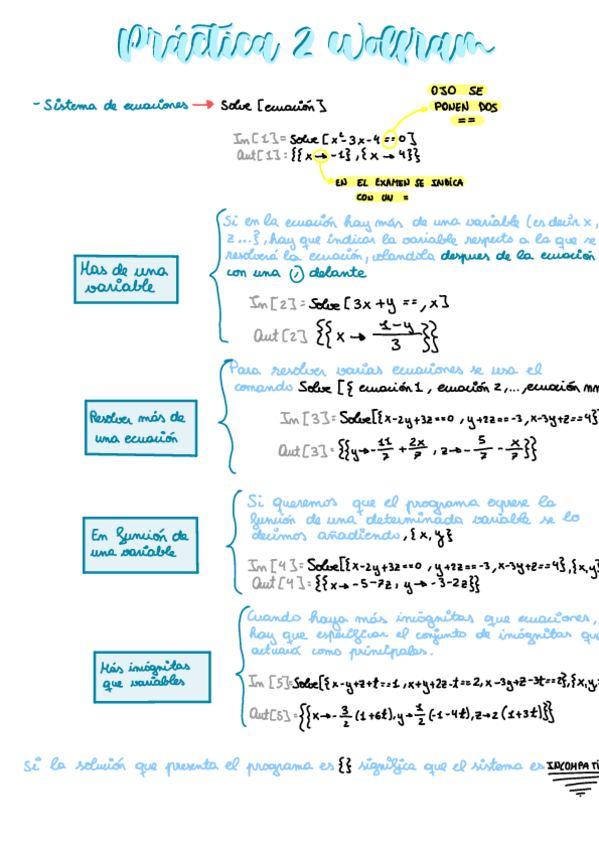 Práctica 2 Wolfram
- Sistema de ecuaciones → Solve [ecuación]
OJO SE
PONEN DOS
==
In[1]= Solve [x²-3x-4==0]
Out[1]: {{x→-1},{x→4}}
EN EL EXAMEN SE INDICA
CON UN =
Más de una
variable
Si en la ecuación hay más de una variable (es decir x,
z...}, hay que indicar la variable respecto a la que se
resolverá la ecuación, colandola despues de la ecuación
con una (,) delante
In[2]= Solve [3x+y ==, x]
Out[2] {{x → 1-y/3}}
Resolver más de
una ecuación
Para resolver varias ecuaciones se usa el
comando Solve [{ ecuación1, ecuación 2,...,ecuación nn
In[3]= Solve[{x-2y+3z==0, y+2z==-3, x-3y+z==4}
Out[3]= {{y→-11/7+2x/7, z→-5/7-x/7}}
En función de
una variable
Si queremos que el programa exprese la
función de una determinada variable se lo
decimos añadiendo, {x,y}
In[4]= Solve[{x-2y+3z==0, y+2z==-3, x-3y+z==4},{x,y}
Out[4]= {{x→-5-7z, y→-3-2z}}
Más incógnitas
que variables
Cuando haya más incógnitas que ecuaciones,
hay que especificar el conjunto de incógnitas qu
actuará como principales.
In [5]=Solve[{x-y+z+t==1, x+y+2z-t==2, x-3y+z-3t==2},{x,y,
Out[5]= {{x→-3/2(1+6t), y→1/2(-1-4t), z→2(1+3t)}}
Si la solución que presenta el programa es {} significa que el sistema es INCOMPATI